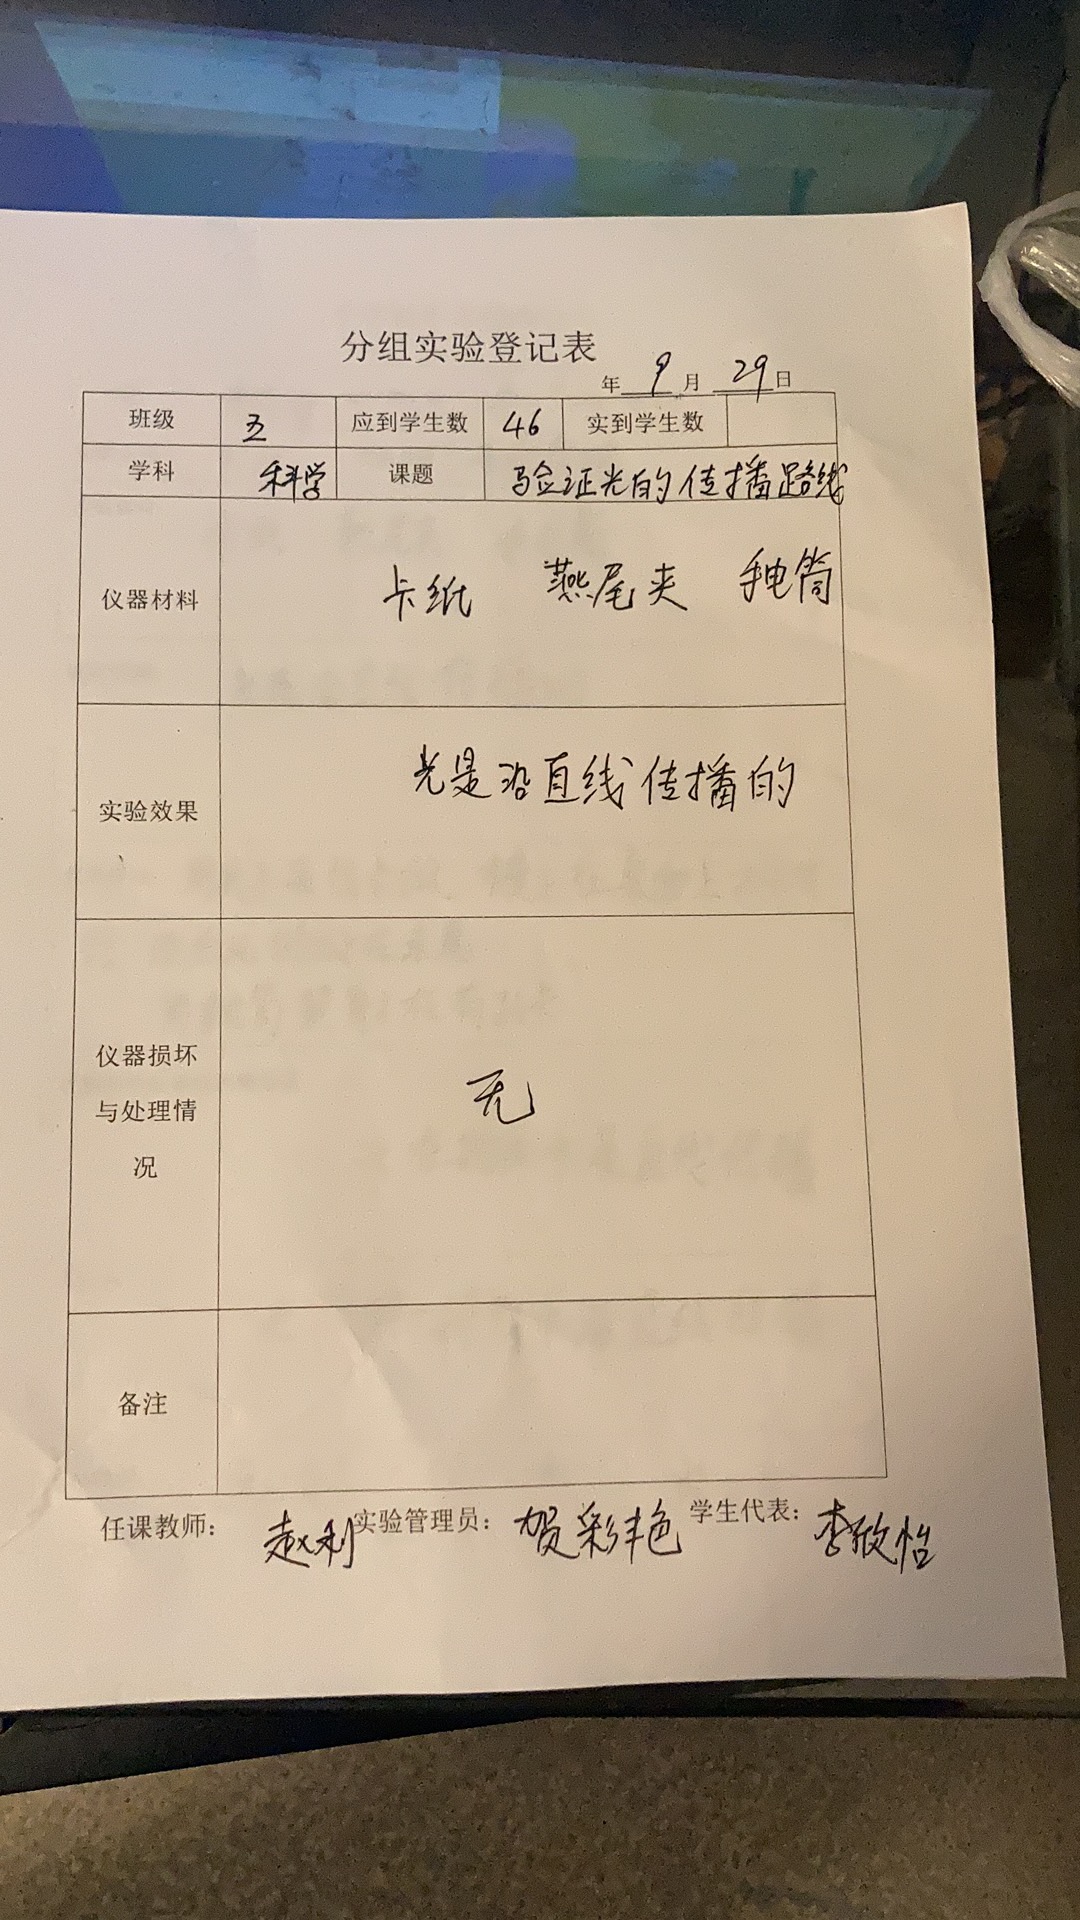 分组实验登记表
年 9 月 29 日
班级 五 应到学生数 46 实到学生数
学科 科学 课题 验证光的传播路线
仪器材料 卡纸 燕尾夹 手电筒
实验效果 光是沿直线传播的
仪器损坏
与处理情 无
况
备注
任课教师： 赵利 实验管理员： 贺彩艳 学生代表： 李欣怡